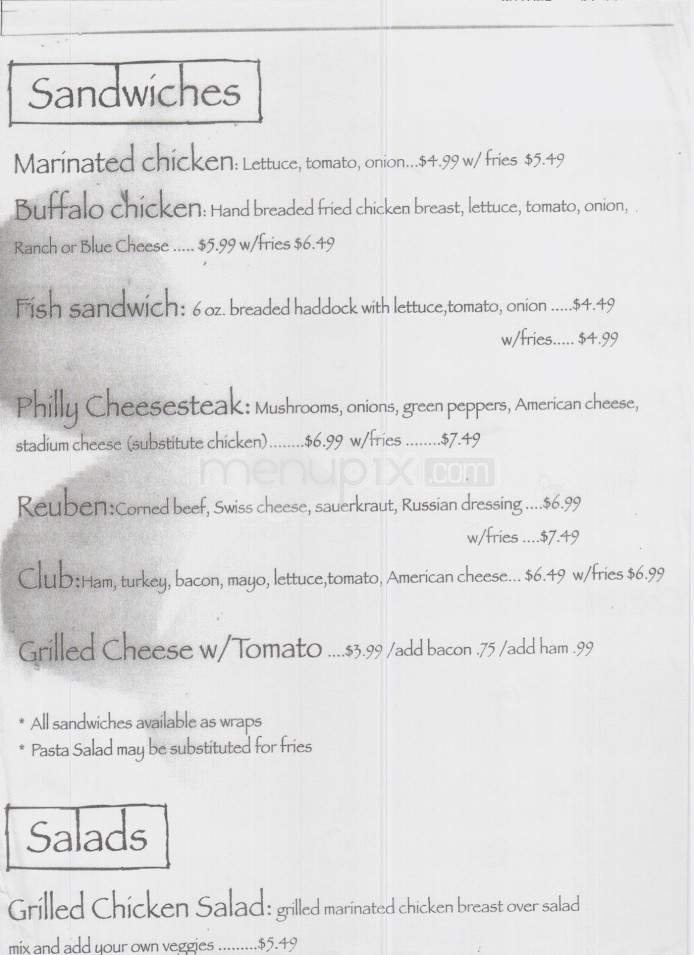 Sandwiches
Marinated chicken: Lettuce, tomato, onion...$4.99 w/ fries $5.49
Buffalo chicken: Hand breaded fried chicken breast, lettuce, tomato, onion,
Ranch or Blue Cheese ..... $5.99 w/fries $6.49
Fish sandwich: 6 oz. breaded haddock with lettuce,tomato, onion .....$4.49
w/fries..... $4.99
Philly Cheesesteak: Mushrooms, onions, green peppers, American cheese,
stadium cheese (substitute chicken)........$6.99 w/fries ........$7.49
menupix.com
Reuben:Corned beef, Swiss cheese, sauerkraut, Russian dressing ....$6.99
w/fries ....$7.49
Club:Ham, turkey, bacon, mayo, lettuce,tomato, American cheese... $6.49 w/fries $6.99
Grilled Cheese w/Tomato ....$3.99 /add bacon .75 /add ham .99
* All sandwiches available as wraps
* Pasta Salad may be substituted for fries
Salads
Grilled Chicken Salad: grilled marinated chicken breast over salad
mix and add your own veggies .........$5.49